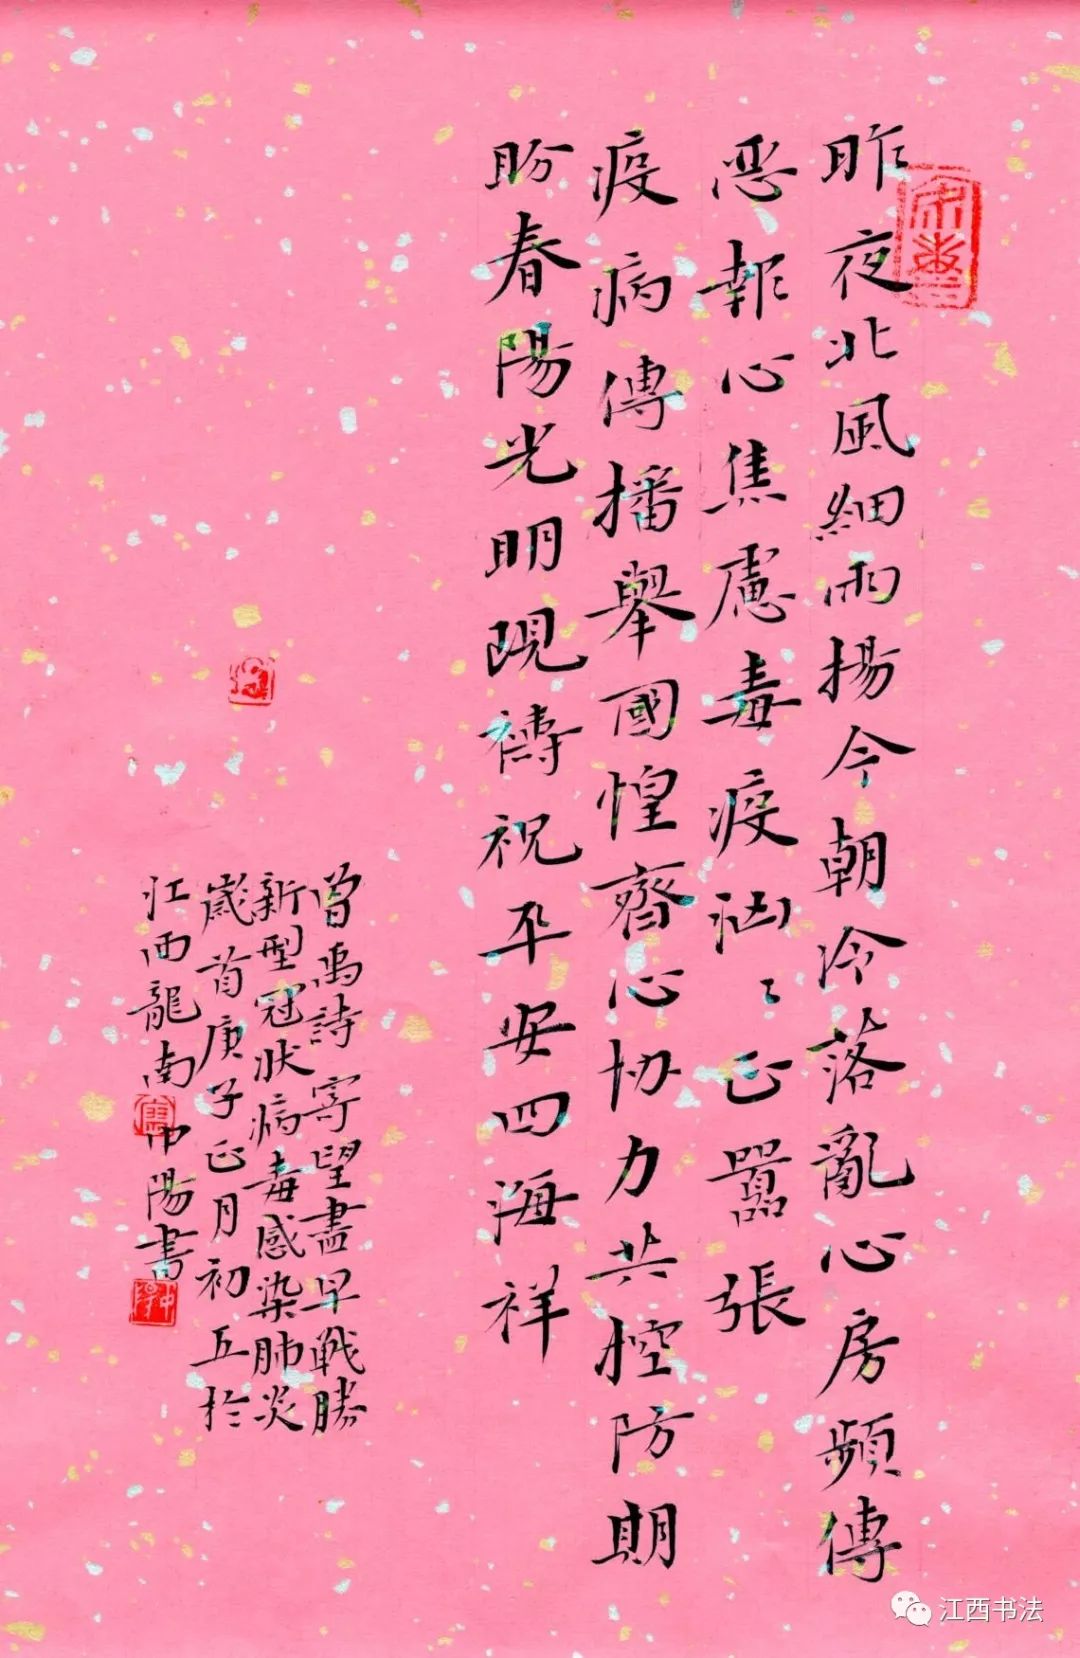 昨夜北風細雨揚今朝冷落亂心房頻傳
恶報心焦慮毒疫汹々正囂張
疫病傳播舉國惶齊心协力共控防期
盼春陽光明現禱祝平安四海祥
曾禹詩寄望盡早戰勝
新型冠狀病毒感染肺炎
歲首庚子正月初五於
江西龍南中陽書
江西书法